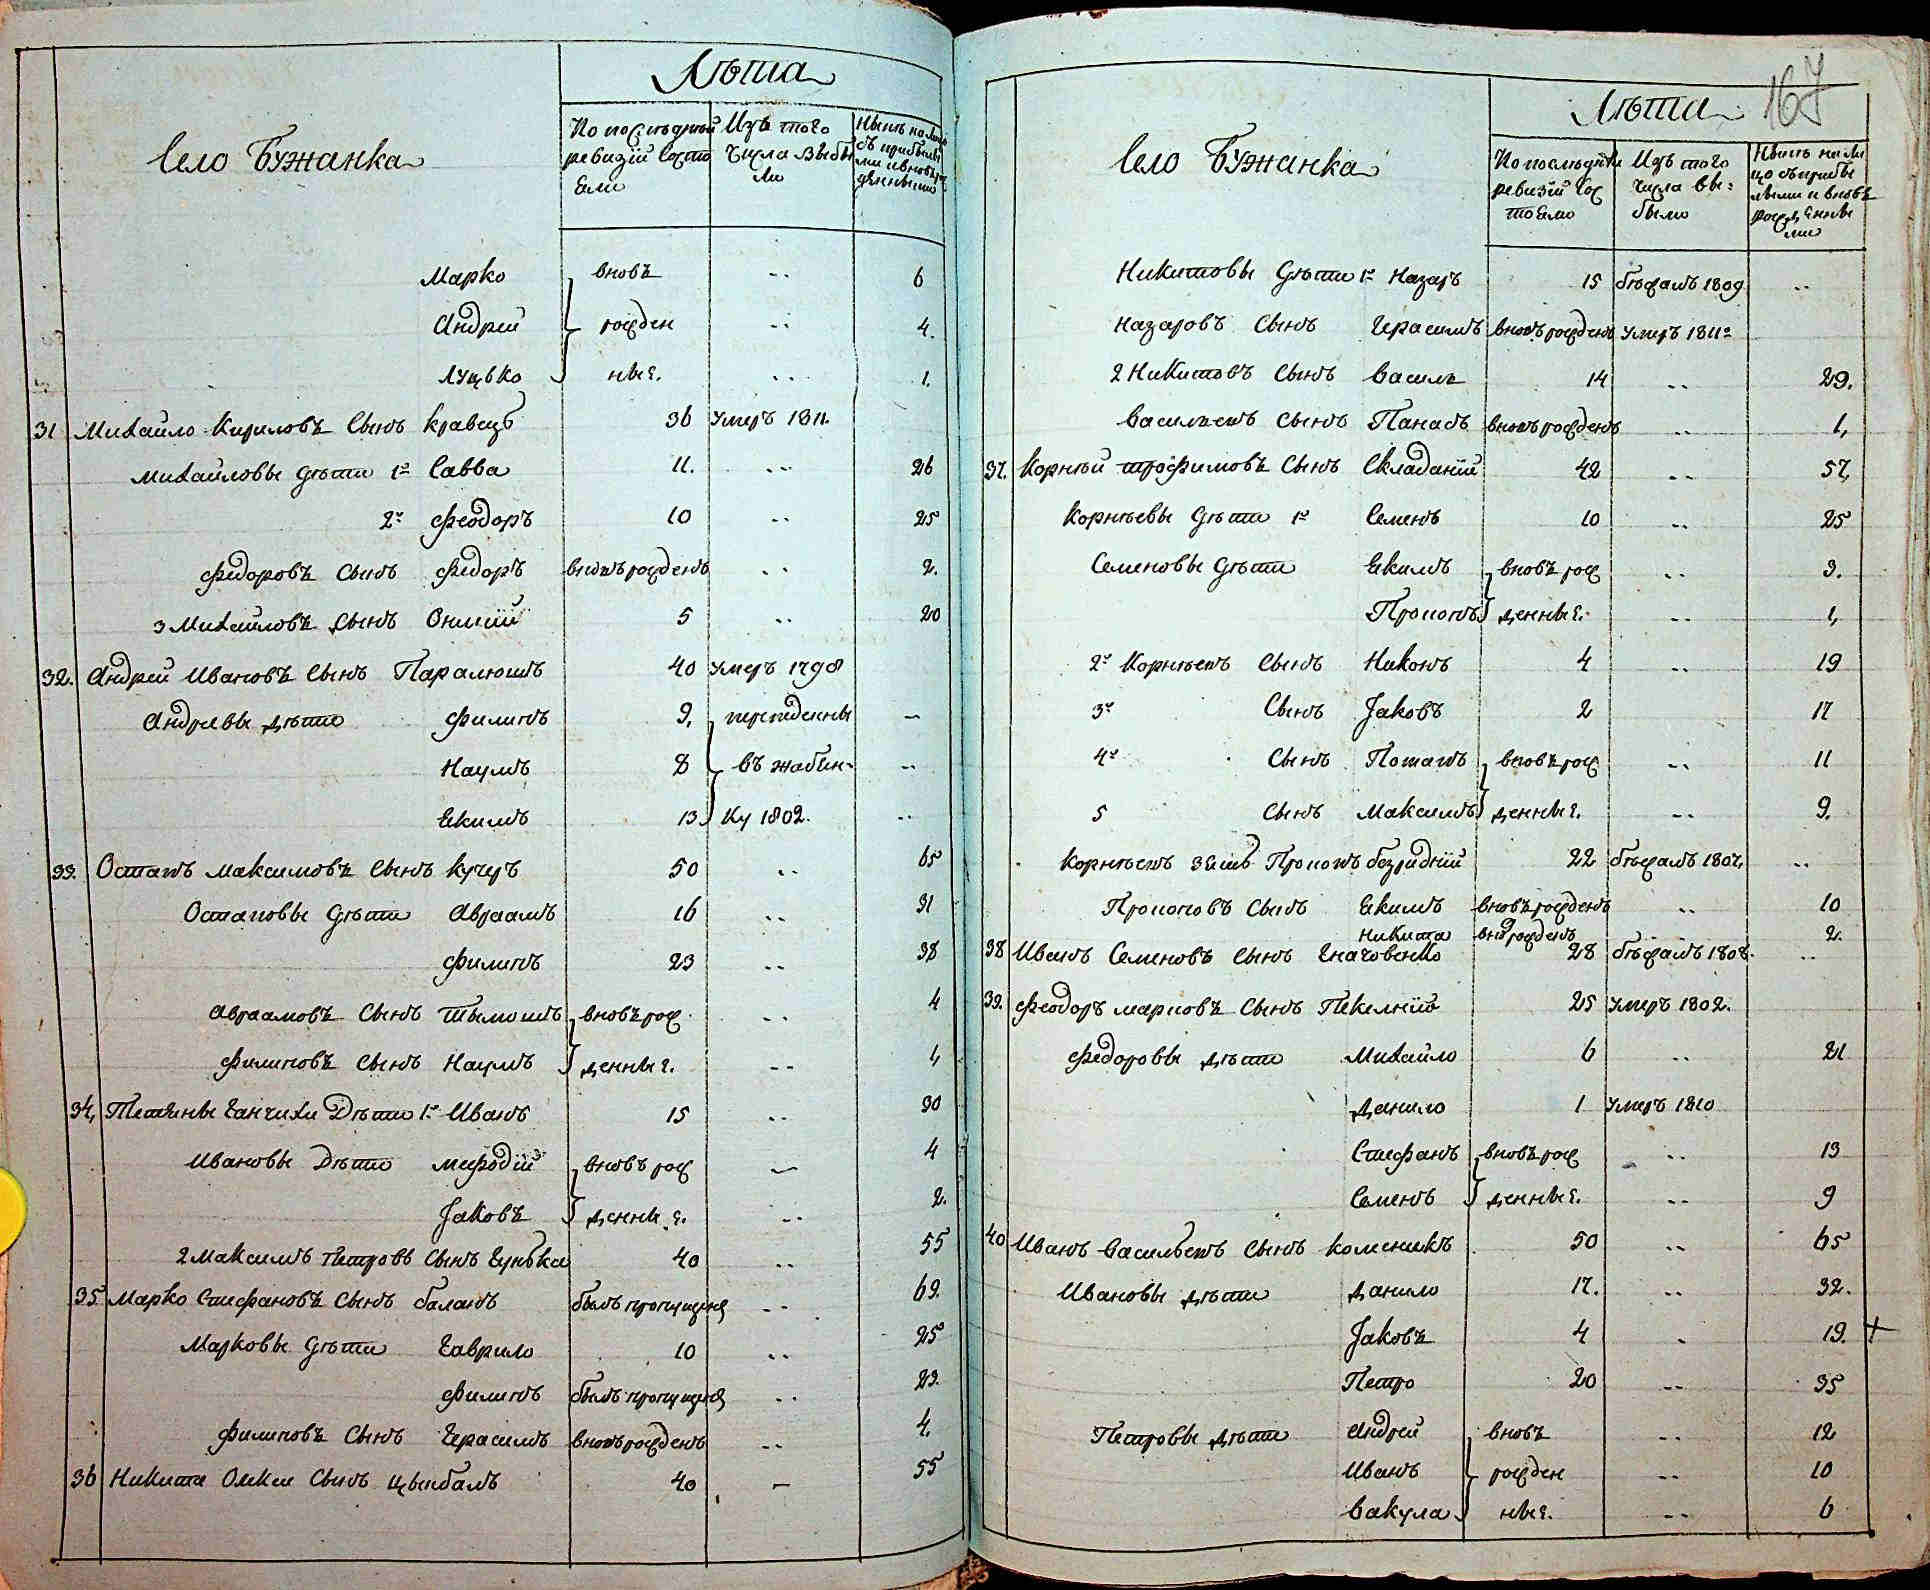 Лѣта
Село Бужанка
По последней ревизіи состояли
Изъ того числа выбыли
Нынѣ на лицо съ прибылыми и вновь рожденными
Марко вновь -- 6
Андрей рожден -- 4.
Луцько ные. -- 1.
31 Михайло Кириловъ Сынъ Кравецъ 36 умеръ 1811.
Михайловы дѣти 1й Савва 11. -- 26
2й Феодоръ 10 -- 25
Федоровъ Сынъ Федоръ вновь рожденъ -- 2.
3 Михайловъ Сынъ Онисій 5 -- 20
32. Андрей Ивановъ Сынъ Паралюшъ 40 умеръ 1798
Андрѣевы дѣти Филипъ 9. переведены --
Наумъ 8 въ жабин- --
Екимъ 13 ку 1802. --
33. Остапъ Максимовъ Сынъ Кучеръ 50 -- 65
Остаповы дѣти Авраамъ 16 -- 31
Филипъ 23 -- 38
Авраамовъ Сынъ Тымошъ вновь рож -- 4
Филиповъ Сынъ Наумъ денные. -- 4
34, Тетяны Ганчихи Дѣти 1й Иванъ 15 -- 30
Ивановы Дѣти Мефодій вновь рож -- 4
Jаковъ денные. -- 2.
2 Максимъ Петровъ Сынъ Гунька 40 -- 55
35 Марко Стефановъ Сынъ Баланъ былъ пропущенъ -- 69.
Марковы дѣти Гаврило 10 -- 25
Филипъ былъ пропущенъ -- 23.
Филиповъ Сынъ Герасимъ вновь рожденъ -- 4.
36 Никита Олекси Сынъ Цымбалъ 40 -- 55
167
Лѣта
Село Бужанка
По последней ревизіи состояло
Изъ того числа выбыло
Нынѣ на лицо съ прибылыми и вновь рожденными
Никитовы дѣти 1й Назаръ 15 бѣжалъ 1809 --
Назаровъ Сынъ Герасимъ вновь рожденъ умеръ 1811го
2 Никитовъ Сынъ Василь 14 -- 29.
Васильевъ Сынъ Панасъ вновь рожденъ -- 1,
37. Корнѣй Трофимовъ Сынъ Складаній 42 -- 57,
Корнѣевы дѣти 1й Семенъ 10 -- 25
Семеновы дѣти Екимъ вновь рож -- 3.
Прокопъ денные. -- 1,
2й Корнѣевъ Сынъ Никонъ 4 -- 19
3й Сынъ Jаковъ 2 -- 17
4й Сынъ Потапъ вновь рож -- 11
5 Сынъ Максимъ денные. -- 9.
Корнѣевъ зять Прокопъ безридній 22 бѣжалъ 1807, --
Прокоповъ Сынъ Екимъ вновь рожденъ -- 10
Никита вно рожденъ 2.
38 Иванъ Семеновъ Сынъ 28 бѣжалъ 1808. --
39. Феодоръ Марковъ Сынъ Пекелній 25 умеръ 1802.
Федоровы дѣти Михайло 6 -- 21
Данило 1 умеръ 1810
Стефанъ вновь рож -- 13
Семенъ денные. -- 9
40 Иванъ Васильевъ Сынъ Колесникъ 50 -- 65
Ивановы дѣти Данило 17. -- 32.
Jаковъ 4 - 19. +
Петро 20 -- 35
Петровы дѣти Андрей вновь -- 12
Иванъ рожден -- 10
Вакула ные. -- 6